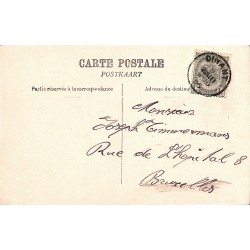 CARTE POSTALE
POSTKAART
Partie réservée à la correspondance
Adresse du destinataire
DINANT
Monsieur
Joseph Timmermans
Rue de l'hopital 8
Bruxelles